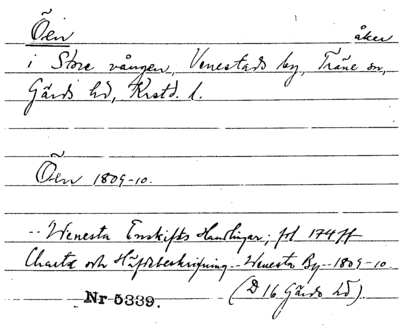 Öen åker
i Store vången, Venestads by, Träne sn,
Gärds hd, Krstd. l.
Öen 1809-10.
-- Wenesta Enskifts Handlingar; fol 174 ff
Charta och Häfdebeskrifning -- Wenesta By -- 1809-10
(D 16 Gärds hd).
Nr 5339.